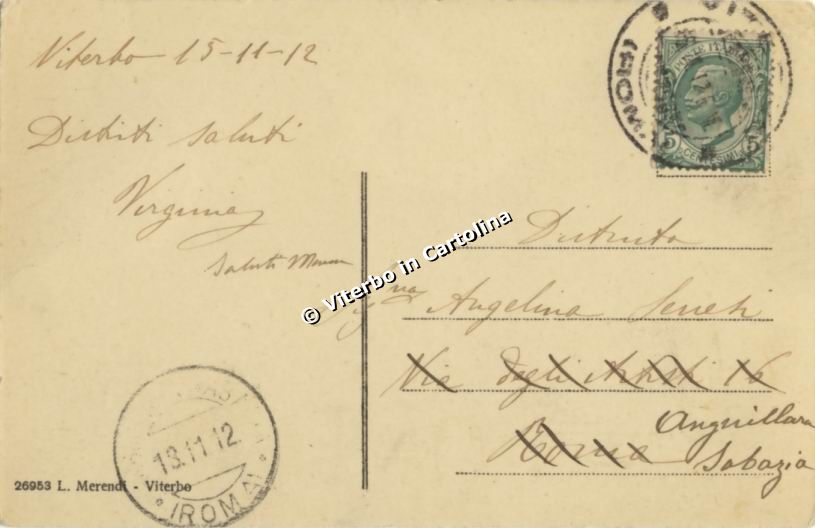 Viterbo 15-11-12
Distinti saluti
Virginia
Saluti
POSTE ITALIANE
5 CENTESIMI 5
(ROMA)
Distinta
Sig.na Angelina
Via degli Artisti 16
Roma
Anguillara
Sabazia
© Viterbo in Cartolina
18.11.12
(ROMA)
26953 L. Merendi - Viterbo